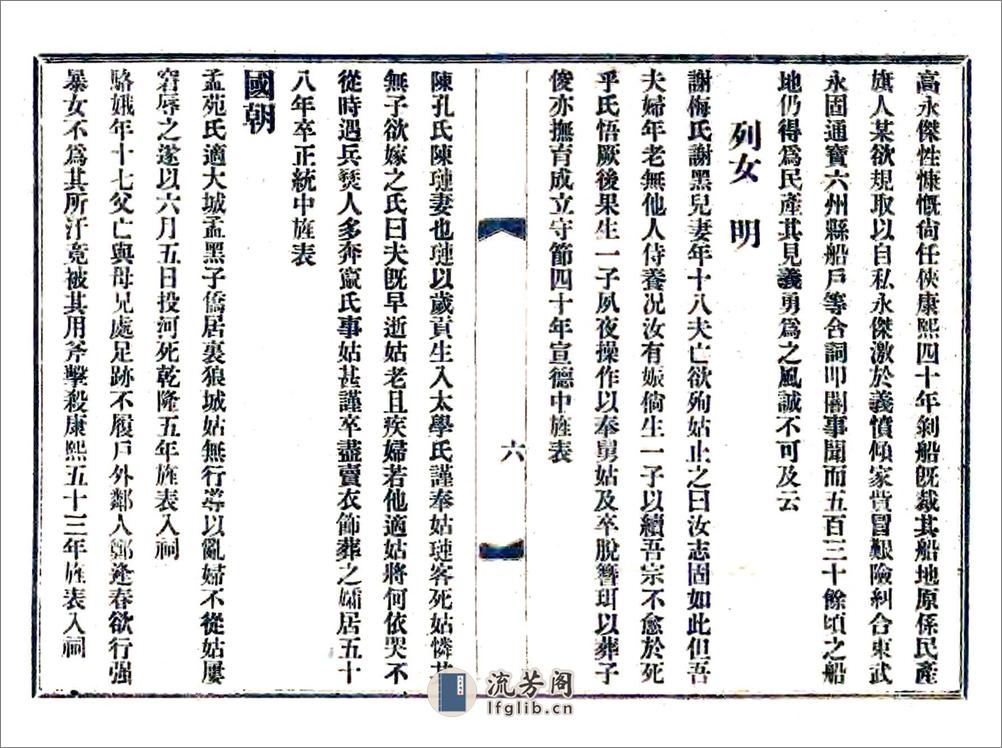 高永傑性慷慨尙任俠康熙四十年剝船旣裁其船地原係民產
旗人某欲規取以自私永傑激於義憤傾家貲冒艱險糾合東武
永固通寶六州縣船戶等合詞叩閽事聞而五百三十餘頃之船
地仍得爲民產其見義勇爲之風誠不可及云
列女 明
謝梅氏謝黑兒妻年十八夫亡欲殉姑止之曰汝志固如此但吾
夫婦年老無他人侍養況汝有娠倘生一子以續吾宗不愈於死
乎氏悟厥後果生一子夙夜操作以奉舅姑及卒脫簪珥以葬子
俊亦撫育成立守節四十年宣德中旌表
六
陳孔氏陳璉妻也璉以歲貢生入太學氏謹奉姑璉客死姑憐其
無子欲嫁之氏曰夫旣早逝姑老且疾婦若他適姑將何依哭不
從時遇兵燹人多奔竄氏事姑甚謹卒盡賣衣飾葬之孀居五十
八年卒正統中旌表
國朝
孟苑氏適大城孟黑子僑居裏狼城姑無行導以亂婦不從姑屢
窘辱之遂以六月五日投河死乾隆五年旌表入祠
駱娥年十七父亡與母兄處足跡不履戶外鄰人鄭逢春欲行强
暴女不爲其所汙竟被其用斧擊殺康熙五十三年旌表入祠
流芳阁
lfglib.cn